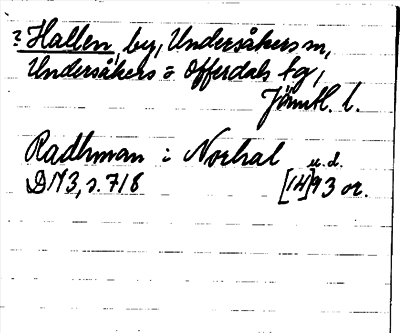 ? Hallen, by, Undersåkers sn,
Undersåkers o Offerdals tg,
Jämtl. l.
Radhman i Norhal
u.d.
DN3, s. 718 [14]93 or.